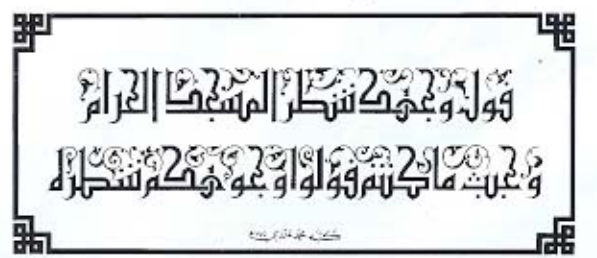 فول وجهك شطر المسجد الحرام
وحيث ما كنتم فولوا وجوهكم شطره